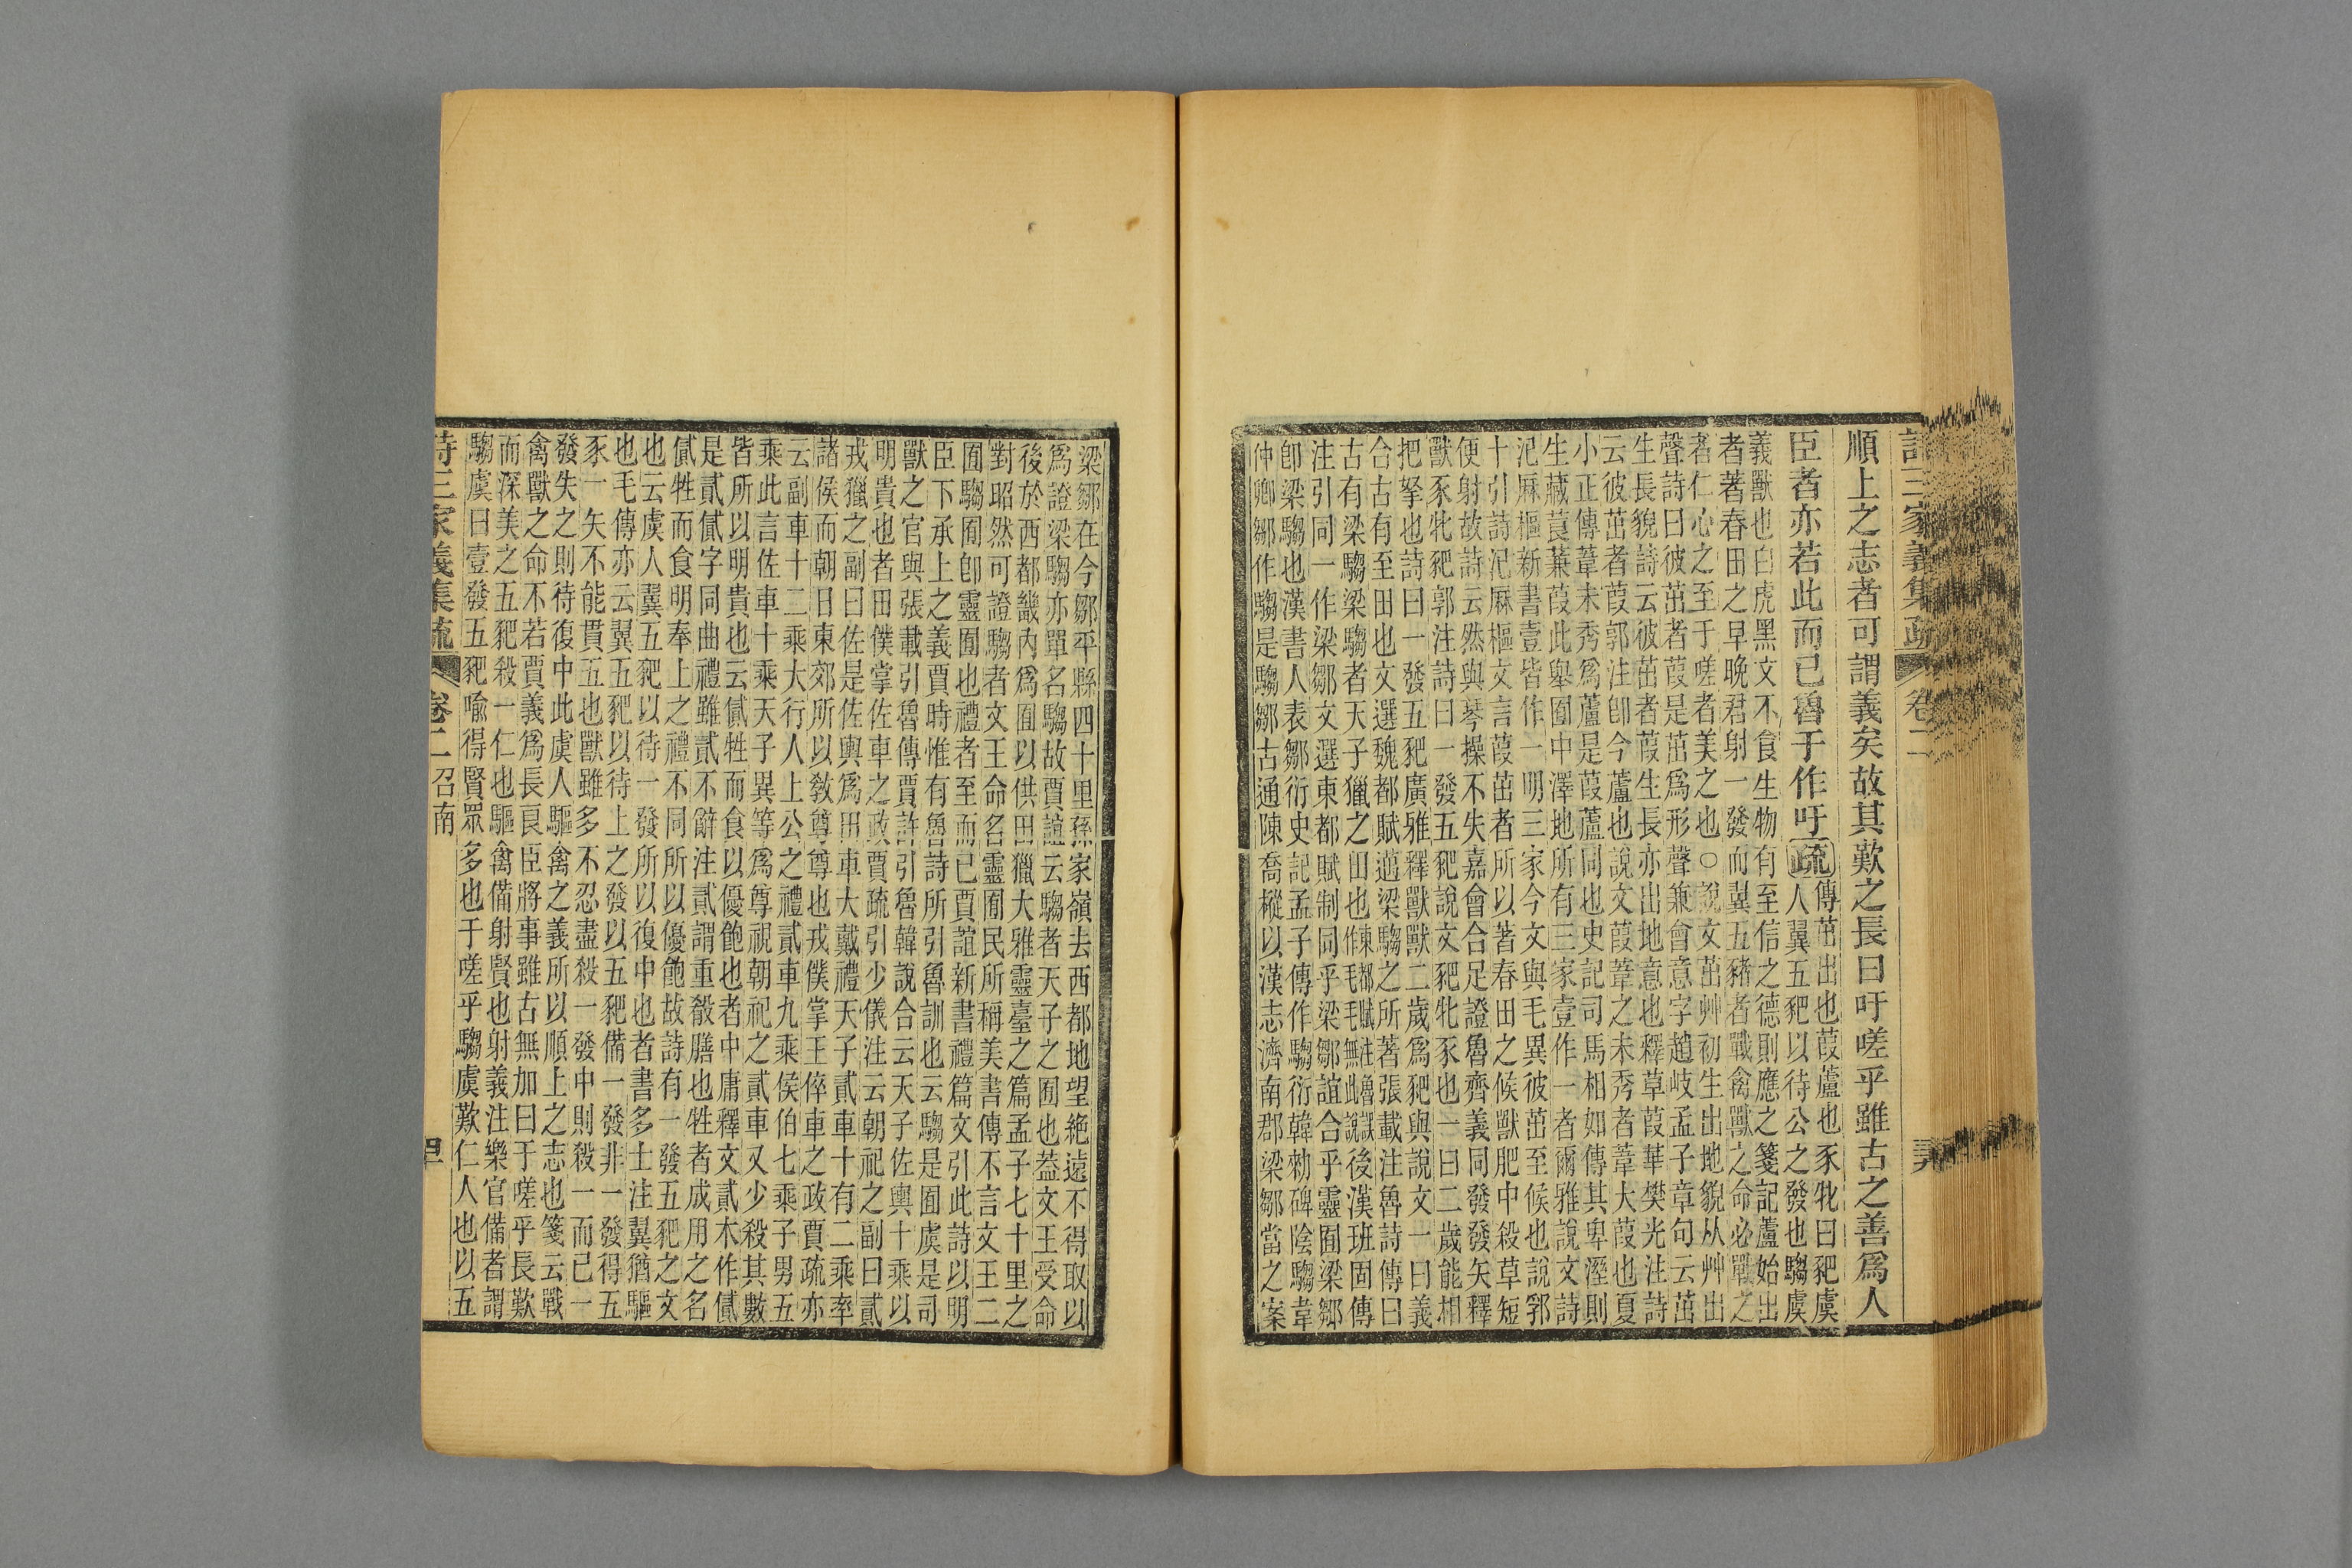 詩三家義集疏 卷二
順上之志者可謂義矣故其歎之長曰吁嗟乎雖古之善爲人
臣者亦若此而已魯于作吁疏
傳茁出也葭蘆也豕牝曰豝虞
人翼五豝以待公之發也騶虞
義獸也白虎黑文不食生物有至信之德則應之箋記蘆始出
者著春田之早晚君射一發而翼五豬者戰禽獸之命必戰之
者仁心之至于嗟者美之也○說文茁艸初生出地貌从艸出
聲詩曰彼茁者葭是茁爲形聲兼會意字趙岐孟子章句云茁
生長貌詩云彼茁者葭生長亦出地意也釋草葭華樊光注詩
云彼茁者葭郭注卽今蘆也說文葭葦之未秀者葦大葭也夏
小正傳葦未秀爲蘆是葭蘆同也史記司馬相如傳其卑溼則
生藏莨蒹葭此舉囿中澤地所有三家壹作一者爾雅說文詩
氾厤樞新書壹皆作一明三家今文與毛異彼茁至候也說郛
十引詩氾厤樞文言葭茁者所以著春田之候獸肥中殺草短
便射故詩云然與琴操不失嘉會合足證魯齊義同發發矢釋
獸豕牝豝郭注詩曰一發五豝說文豝牝豕也一曰二歲能相
把拏也詩曰一發五豝廣雅釋獸獸二歲爲豝與說文一曰義
合古有至田也文選魏都賦邁梁騶之所著張載注魯詩傳曰
古有梁騶梁騶者天子獵之田也東都賦注魯誤作毛毛無此說後漢班固傳
注引同一作梁鄒文選東都賦制同乎梁鄒誼合乎靈囿梁鄒
卽梁騶也漢書人表鄒衍史記孟子傳作騶衍韓勑碑陰騶韋
仲卿鄒作騶是騶鄒古通陳喬樅以漢志濟南郡梁鄒當之案
梁鄒在今鄒平縣四十里孫家嶺去西都地望絶遠不得取以
爲證梁騶亦單名騶故賈誼云騶者天子之囿也葢文王受命
後於西都畿內爲囿以供田獵大雅靈臺之篇孟子七十里之
對昭然可證騶者文王命名靈囿民所稱美書傳不言文王二
囿騶囿卽靈囿也禮者至而已賈誼新書禮篇文引此詩以明
臣下承上之義賈時惟有魯詩所引魯訓也云騶是囿虞是司
獸之官與張載引魯傳賈許引魯韓說合云天子佐輿十乘以
明貴也者田僕掌佐車之政賈疏引少儀注云朝祀之副曰貳
戎獵之副曰佐是佐輿爲田車大戴禮天子貳車十有二乘率
諸侯而朝日東郊所以敎尊尊也戎僕掌王倅車之政賈疏亦
云副車十二乘大行人上公之禮貳車九乘侯伯七乘子男五
乘此言佐車十乘天子異等爲尊視朝祀之貳車又少殺其數
皆所以明貴也云貳牲而食以優飽也者中庸釋文貳木作貣
是貳貣字同曲禮雖貳不辭注貳謂重殽膳也牲者成用之名
貳牲而食明奉上之禮不同所以優飽故詩有一發五豝之文
也云虞人翼五豝以待一發所以復中也者書多士注翼猶驅
也毛傳亦云翼五豝以待上之發以五豝備一發非一發得五
豕一矢不能貫五也獸雖多不忍盡殺一發中則殺一而已一
發失之則待復中此虞人驅禽之義所以順上之志也箋云戰
禽獸之命不若賈義爲長良臣將事雖古無加曰于嗟乎長歎
而深美之五豝殺一仁也驅禽備射賢也射義注樂官備者謂
騶虞曰壹發五豝喻得賢眾多也于嗟乎騶虞歎仁人也以五
詩三家義集疏 卷二 召南